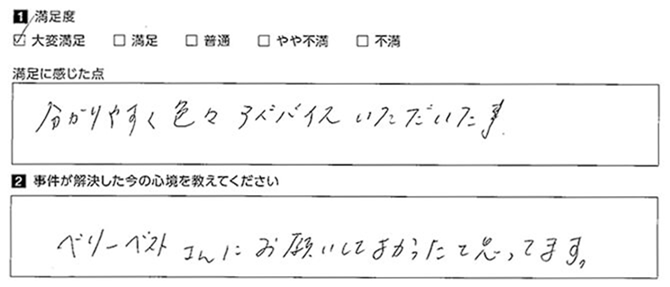 1 満足度
☑ 大変満足 □ 満足 □ 普通 □ やや不満 □ 不満
満足に感じた点
分かりやすく色々アドバイスいただいた事
2 事件が解決した今の心境を教えてください
ベリーベストさんにお願いしてよかったて思ってます。